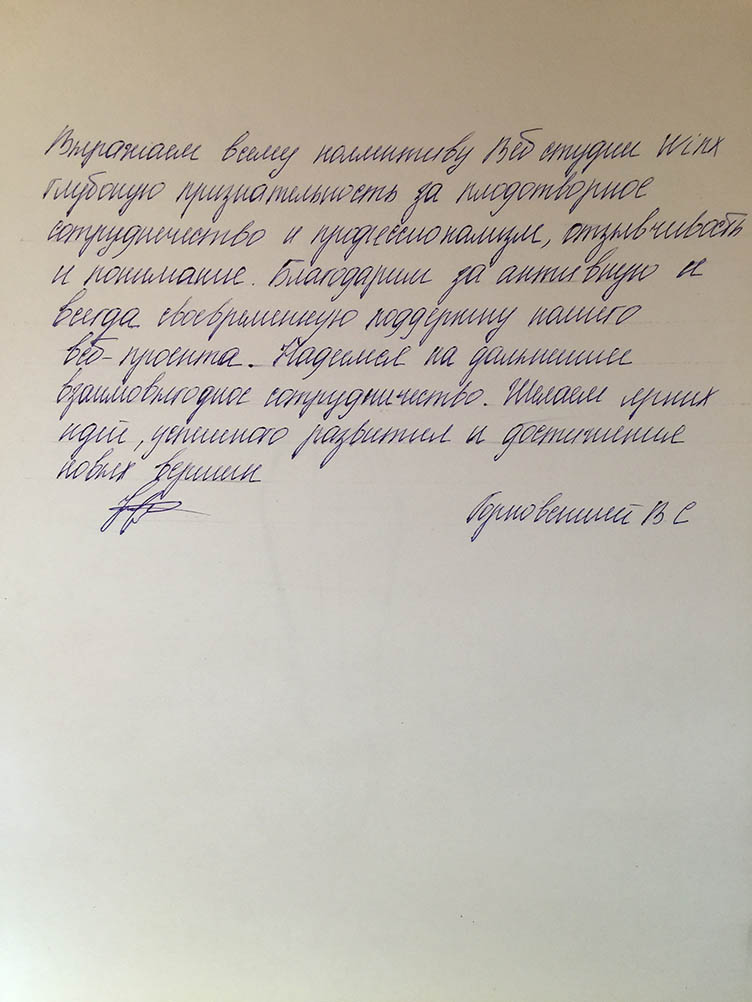 Выражаем всему коллективу Веб студии Winx
глубокую признательность за плодотворное
сотрудничество и профессионализм, отзывчивость
и понимание. Благодарим за активную и
всегда своевременную поддержку нашего
веб-проекта. Надеемся на дальнейшее
взаимовыгодное сотрудничество. Желаем ярких
идей, успешного развития и достижения
новых вершин
В С